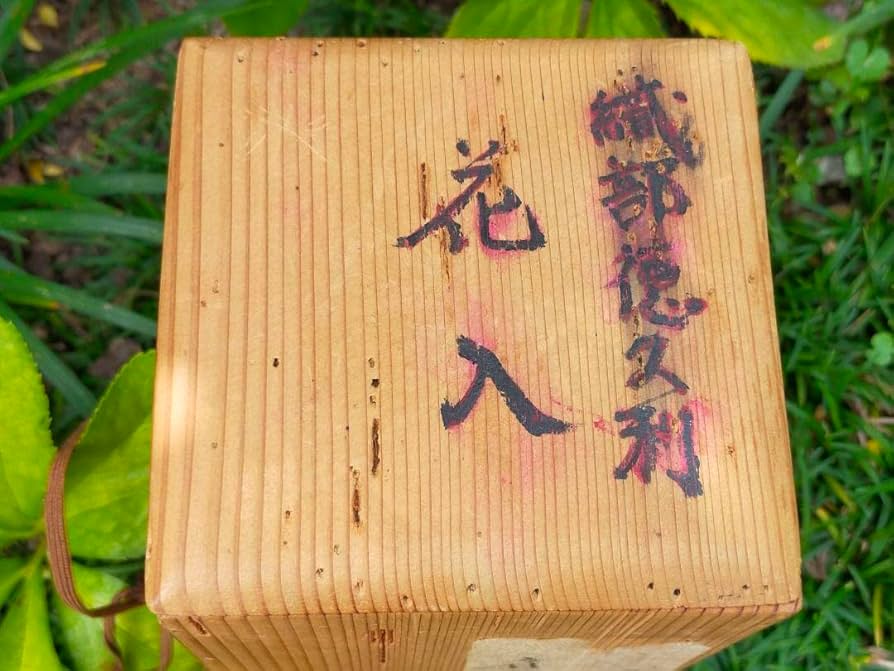 織部徳久利
花入